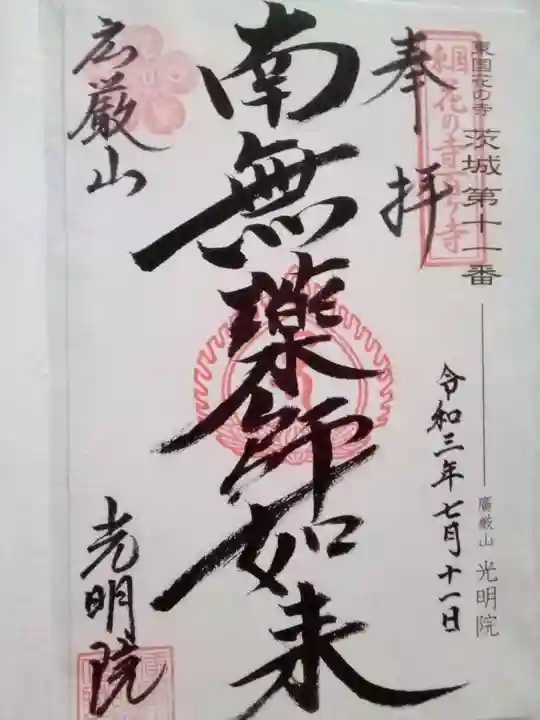 東国花の寺 茨城第十一番 廣厳山 光明院
東国花の寺百ヶ寺
奉拝
令和三年七月十一日
南無薬師如来
広厳山
光明院